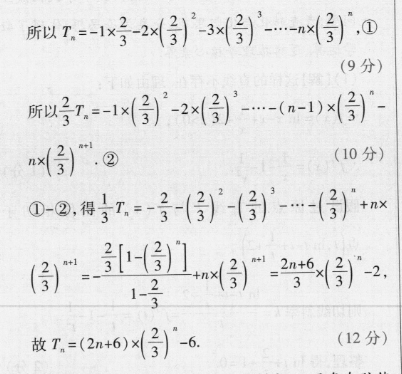 所以 Tₙ=-1×2/3-2×(2/3)²-3×(2/3)³-…-n×(2/3)ⁿ,①
(9 分)
所以2/3Tₙ=-1×(2/3)²-2×(2/3)³-…-(n-1)×(2/3)ⁿ-
n×(2/3)ⁿ⁺¹. ②
(10 分)
①-②,得1/3Tₙ=-2/3-(2/3)²-(2/3)³-…-(2/3)ⁿ+n×
(2/3)ⁿ⁺¹=-(2/3[1-(2/3)ⁿ])/(1-2/3)+n×(2/3)ⁿ⁺¹=(2n+6)/3×(2/3)ⁿ-2,
故 Tₙ=(2n+6)×(2/3)ⁿ-6.
(12 分)